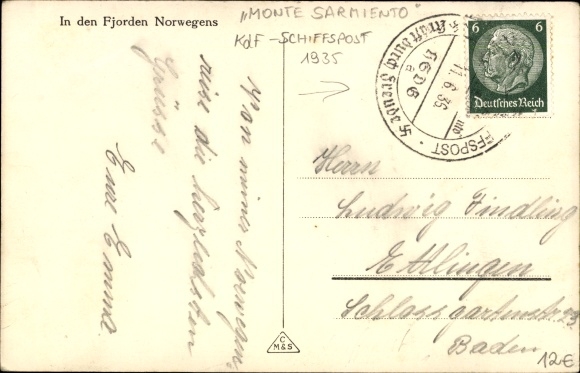 In den Fjorden Norwegens
"MONTE SARMIENTO"
KdF-SCHIFFSPOST
1935
Von meiner Norwegen
reise die herzlichsten
Grüsse
Eure Emma
Kraft durch Freude
NSDG
11.6.35
SCHIFFSPOST
6 6
Deutsches Reich
Herrn
Ludwig Findling
Ettlingen
Schlossgartenstr. 23
Baden
C
M&S
12€